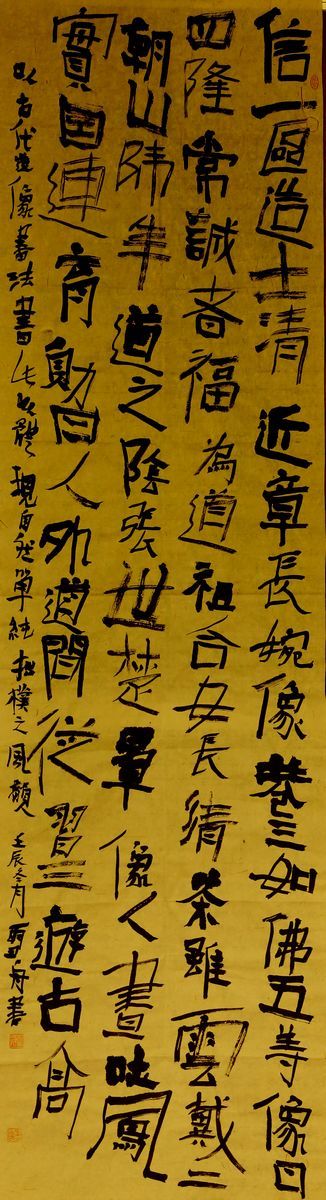 信一區造士清近章長婉像養三如佛五尊像曰
四隆常誠者福為道祖合女長清茶雖雲戴二
朝山陣年道之除張世楚軍像人晝吐鳳
實因連育動曰人外道問從習三遊古高
以古代造像書法書作以體現自然單純拙樸之風貌壬辰冬月